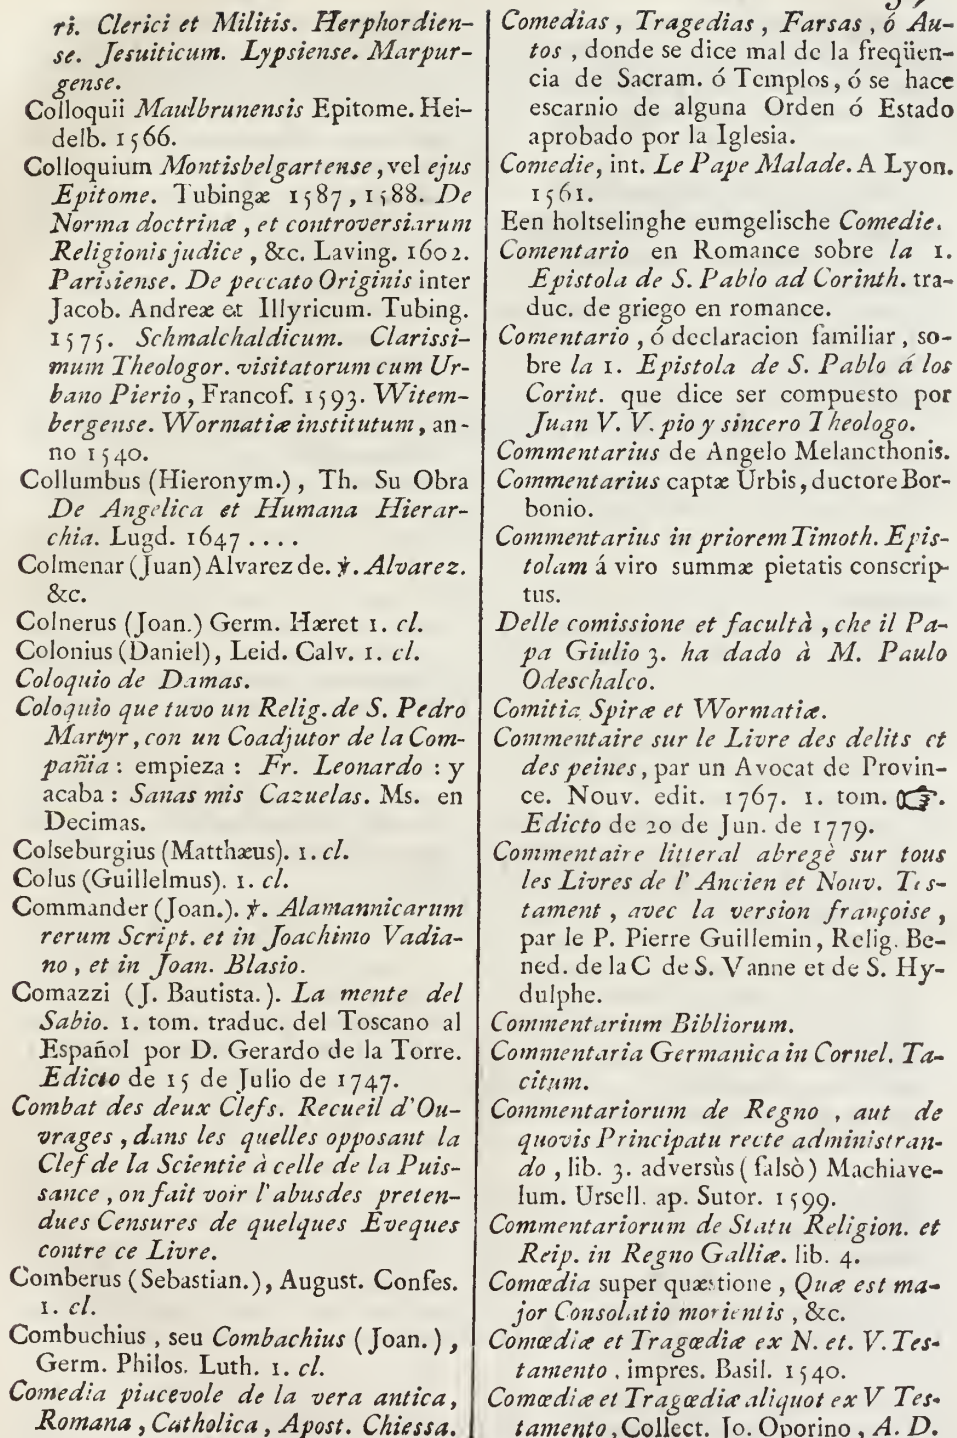 ri. Clerici et Militis. Herphordien-
se. Jesuiticum. Lypsiense. Marpur-
gense.
Colloquii Maulbrunensis Epitome. Hei-
delb. 1566.
Colloquium Montisbelgartense, vel ejus
Epitome. Tubingæ 1587, 1588. De
Norma doctrinæ, et controversiarum
Religionis judice, &c. Laving. 1602.
Parisiense. De peccato Originis inter
Jacob. Andreæ et Illyricum. Tubing.
1575. Schmalchaldicum. Clarissi-
mum Theologor. visitatorum cum Ur-
bano Pierio, Francof. 1593. Witem-
bergense. Wormatiæ institutum, an-
no 1540.
Collumbus (Hieronym.), Th. Su Obra
De Angelica et Humana Hierar-
chia. Lugd. 1647 ....
Colmenar (Juan) Alvarez de. ℣. Alvarez.
&c.
Colnerus (Joan.) Germ. Hæret 1. cl.
Colonius (Daniel), Leid. Calv. 1. cl.
Coloquio de Damas.
Coloquio que tuvo un Relig. de S. Pedro
Martyr, con un Coadjutor de la Com-
pañia: empieza: Fr. Leonardo: y
acaba: Sanas mis Cazuelas. Ms. en
Decimas.
Colseburgius (Matthæus). 1. cl.
Colus (Guillelmus). 1. cl.
Commander (Joan.). ℣. Alamannicarum
rerum Script. et in Joachimo Vadia-
no, et in Joan. Blasio.
Comazzi (J. Bautista.). La mente del
Sabio. 1. tom. traduc. del Toscano al
Español por D. Gerardo de la Torre.
Edicto de 15 de Julio de 1747.
Combat des deux Clefs. Recueil d'Ou-
vrages, dans les quelles opposant la
Clef de la Scientie à celle de la Puis-
sance, on fait voir l'abusdes preten-
dues Censures de quelques Eveques
contre ce Livre.
Comberus (Sebastian.), August. Confes.
1. cl.
Combuchius, seu Combachius (Joan.),
Germ. Philos. Luth. 1. cl.
Comedia piacevole de la vera antica,
Romana, Catholica, Apost. Chiessa.
Comedias, Tragedias, Farsas, ó Au-
tos, donde se dice mal de la freqüen-
cia de Sacram. ó Templos, ó se hace
escarnio de alguna Orden ó Estado
aprobado por la Iglesia.
Comedie, int. Le Pape Malade. A Lyon.
1561.
Een holtselinghe eumgelische Comedie.
Comentario en Romance sobre la 1.
Epistola de S. Pablo ad Corinth. tra-
duc. de griego en romance.
Comentario, ó declaracion familiar, so-
bre la 1. Epistola de S. Pablo á los
Corint. que dice ser compuesto por
Juan V. V. pio y sincero Theologo.
Commentarius de Angelo Melancthonis.
Commentarius captæ Urbis, ductore Bor-
bonio.
Commentarius in priorem Timoth. Epis-
tolam á viro summæ pietatis conscrip-
tus.
Delle comissione et facultà, che il Pa-
pa Giulio 3. ha dado à M. Paulo
Odeschalco.
Comitia Spiræ et Wormatiæ.
Commentaire sur le Livre des delits et
des peines, par un Avocat de Provin-
ce. Nouv. edit. 1767. 1. tom. ☞.
Edicto de 20 de Jun. de 1779.
Commentaire litteral abregè sur tous
les Livres de l'Ancien et Nouv. Tes-
tament, avec la version françoise,
par le P. Pierre Guillemin, Relig. Be-
ned. de la C de S. Vanne et de S. Hy-
dulphe.
Commentarium Bibliorum.
Commentaria Germanica in Cornel. Ta-
citum.
Commentariorum de Regno, aut de
quovis Principatu recte administran-
do, lib. 3. adversùs (falsò) Machiave-
lum. Ursell. ap. Sutor. 1599.
Commentariorum de Statu Religion. et
Reip. in Regno Galliæ. lib. 4.
Comœdia super quæstione, Quæ est ma-
jor Consolatio morientis, &c.
Comœdiæ et Tragœdiæ ex N. et. V. Tes-
tamento, impres. Basil. 1540.
Comœdiæ et Tragœdiæ aliquot ex V Tes-
tamento, Collect. Jo. Oporino, A. D.